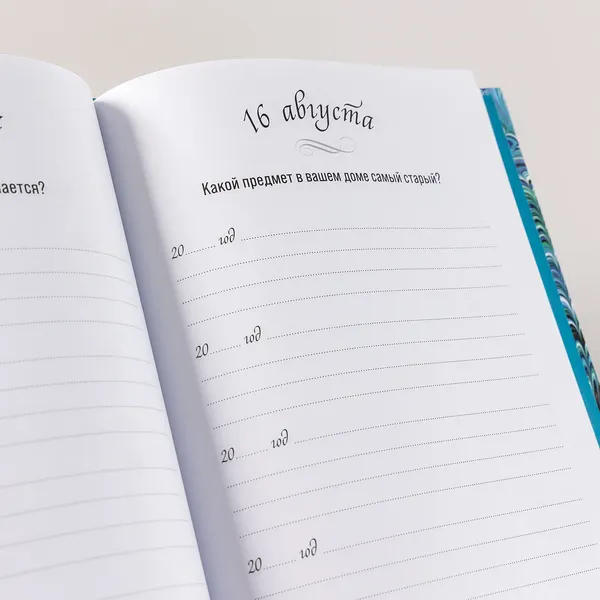 16 августа
Какой предмет в вашем доме самый старый?
20...... год
20...... год
20...... год
20...... год